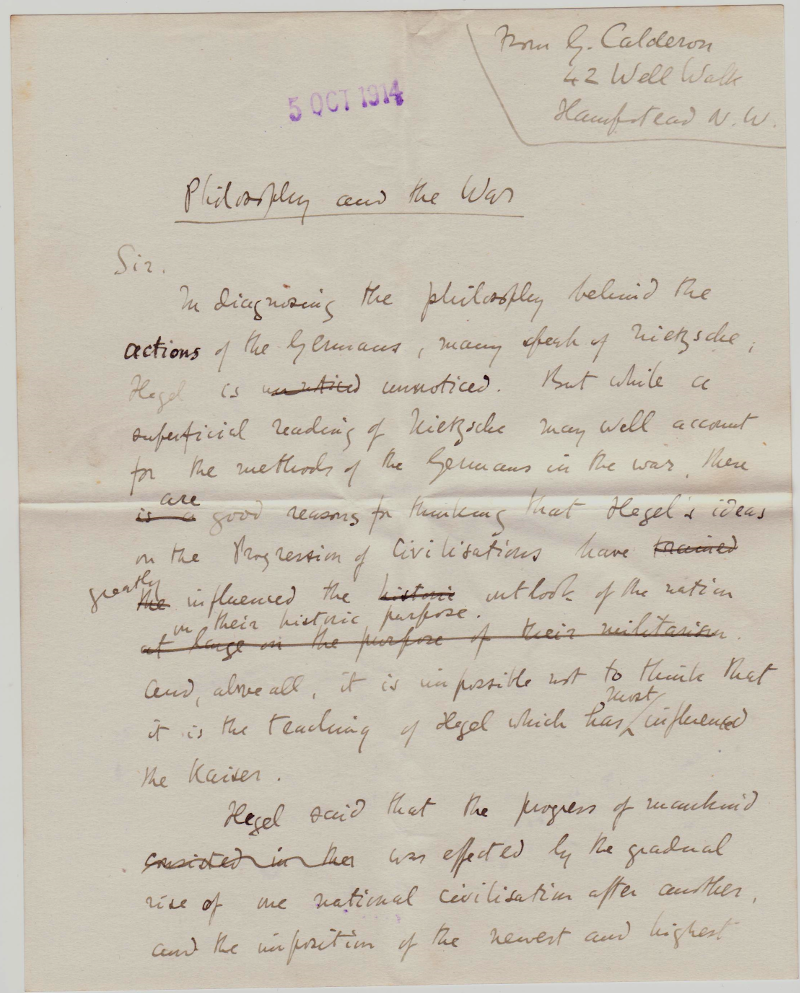 From G. Calderon
42 Well Walk
Hampstead N.W.
5 OCT 1914
Philosophy and the War
Sir.
In diagnosing the philosophy behind the
actions of the Germans, many speak of Nietzsche;
Hegel is unnoticed unnoticed. But while a
superficial reading of Nietzsche may well account
for the methods of the Germans in the war, there
are
is a good reasons for thinking that Hegel's ideas
on the Progression of Civilisations have trained
greatly
the influenced the historic outlook of the nation
on their historic purpose.
at large on the purpose of their militarism.
and, above all, it is impossible not to think that
most
it is the teaching of Hegel which has influenced
the Kaiser.
Hegel said that the progress of mankind
consisted in the was effected by the gradual
rise of one national civilisation after another,
and the imposition of the newest and highest